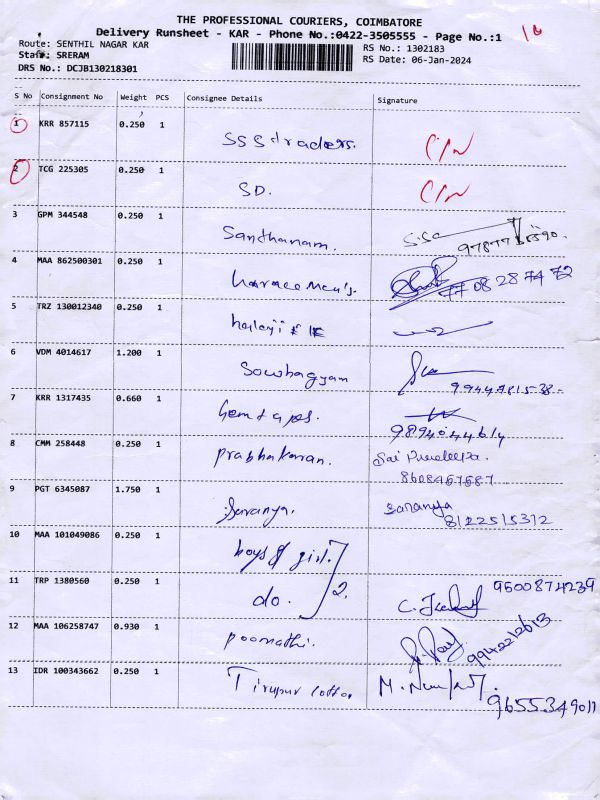 THE PROFESSIONAL COURIERS, COIMBATORE
Delivery Runsheet - KAR - Phone No.:0422-3505555 - Page No.:1
Route: SENTHIL NAGAR KAR RS No.: 1302183
Staff: SRERAM RS Date: 06-Jan-2024
DRS No.: DCJB130218301
S No Consignment No Weight PCS Consignee Details Signature
1 KRR 857115 0.250 1 SSS traders.
2 TCG 225305 0.250 1 SD.
3 GPM 344548 0.250 1 Santhanam.
4 MAA 862500301 0.250 1 77 08 28 74 72
5 TRZ 130012340 0.250 1
6 VDM 4014617 1.200 1 Sowbagyam
7 KRR 1317435 0.660 1
9894044614
8 CMM 258448 0.250 1 Prabhakaran.
8608467687
9 PGT 6345087 1.750 1 Saranya. Saranya
8122515312
10 MAA 101049086 0.250 1 boys & girl.
11 TRP 1380560 0.250 1 do. 2. 9500874239
12 MAA 106258747 0.930 1 Poomathi. 9942212613
13 IDR 100343662 0.250 1 Tirupur Cotton
9655349011